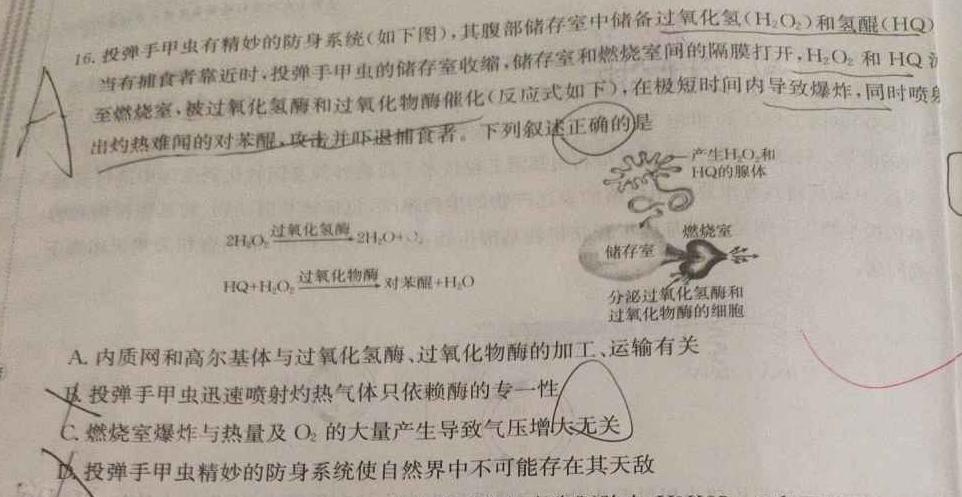 16. 投弹手甲虫有精妙的防身系统(如下图),其腹部储存室中储备过氧化氢(H₂O₂)和氢醌(HQ)
当有捕食者靠近时,投弹手甲虫的储存室收缩,储存室和燃烧室间的隔膜打开,H₂O₂ 和 HQ
至燃烧室,被过氧化氢酶和过氧化物酶催化(反应式如下),在极短时间内导致爆炸,同时喷射
出灼热难闻的对苯醌,攻击并吓退捕食者。下列叙述正确的是
A
产生H₂O₂和
HQ的腺体
2H₂O₂ 过氧化氢酶 2H₂O+O₂
燃烧室
储存室
HQ+H₂O₂ 过氧化物酶 对苯醌+H₂O
分泌过氧化氢酶和
过氧化物酶的细胞
A. 内质网和高尔基体与过氧化氢酶、过氧化物酶的加工、运输有关
B. 投弹手甲虫迅速喷射灼热气体只依赖酶的专一性
C. 燃烧室爆炸与热量及 O₂ 的大量产生导致气压增大无关
D. 投弹手甲虫精妙的防身系统使自然界中不可能存在其天敌